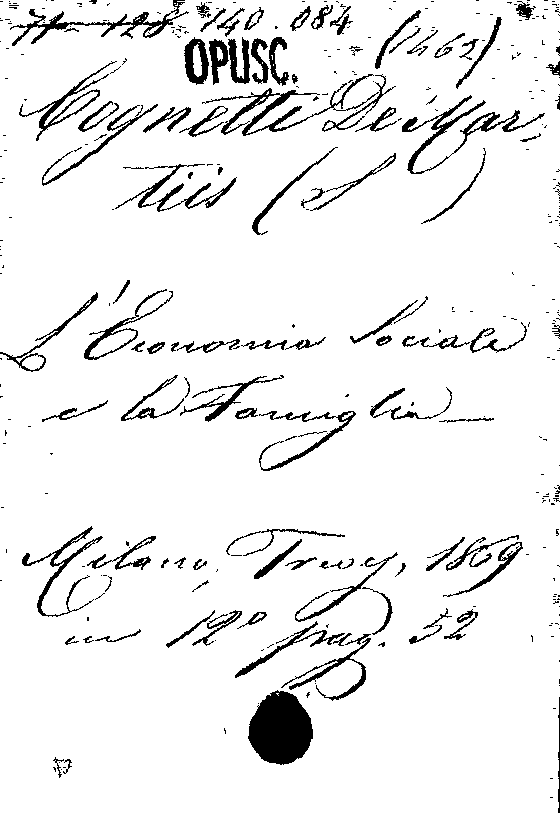 71 128 140.084 (1462)
OPUSC.
Cognetti De Mar-
tiis (S )
L'Economia Sociale
e la Famiglia
Milano, Trevy, 1869
in 12° pag. 52